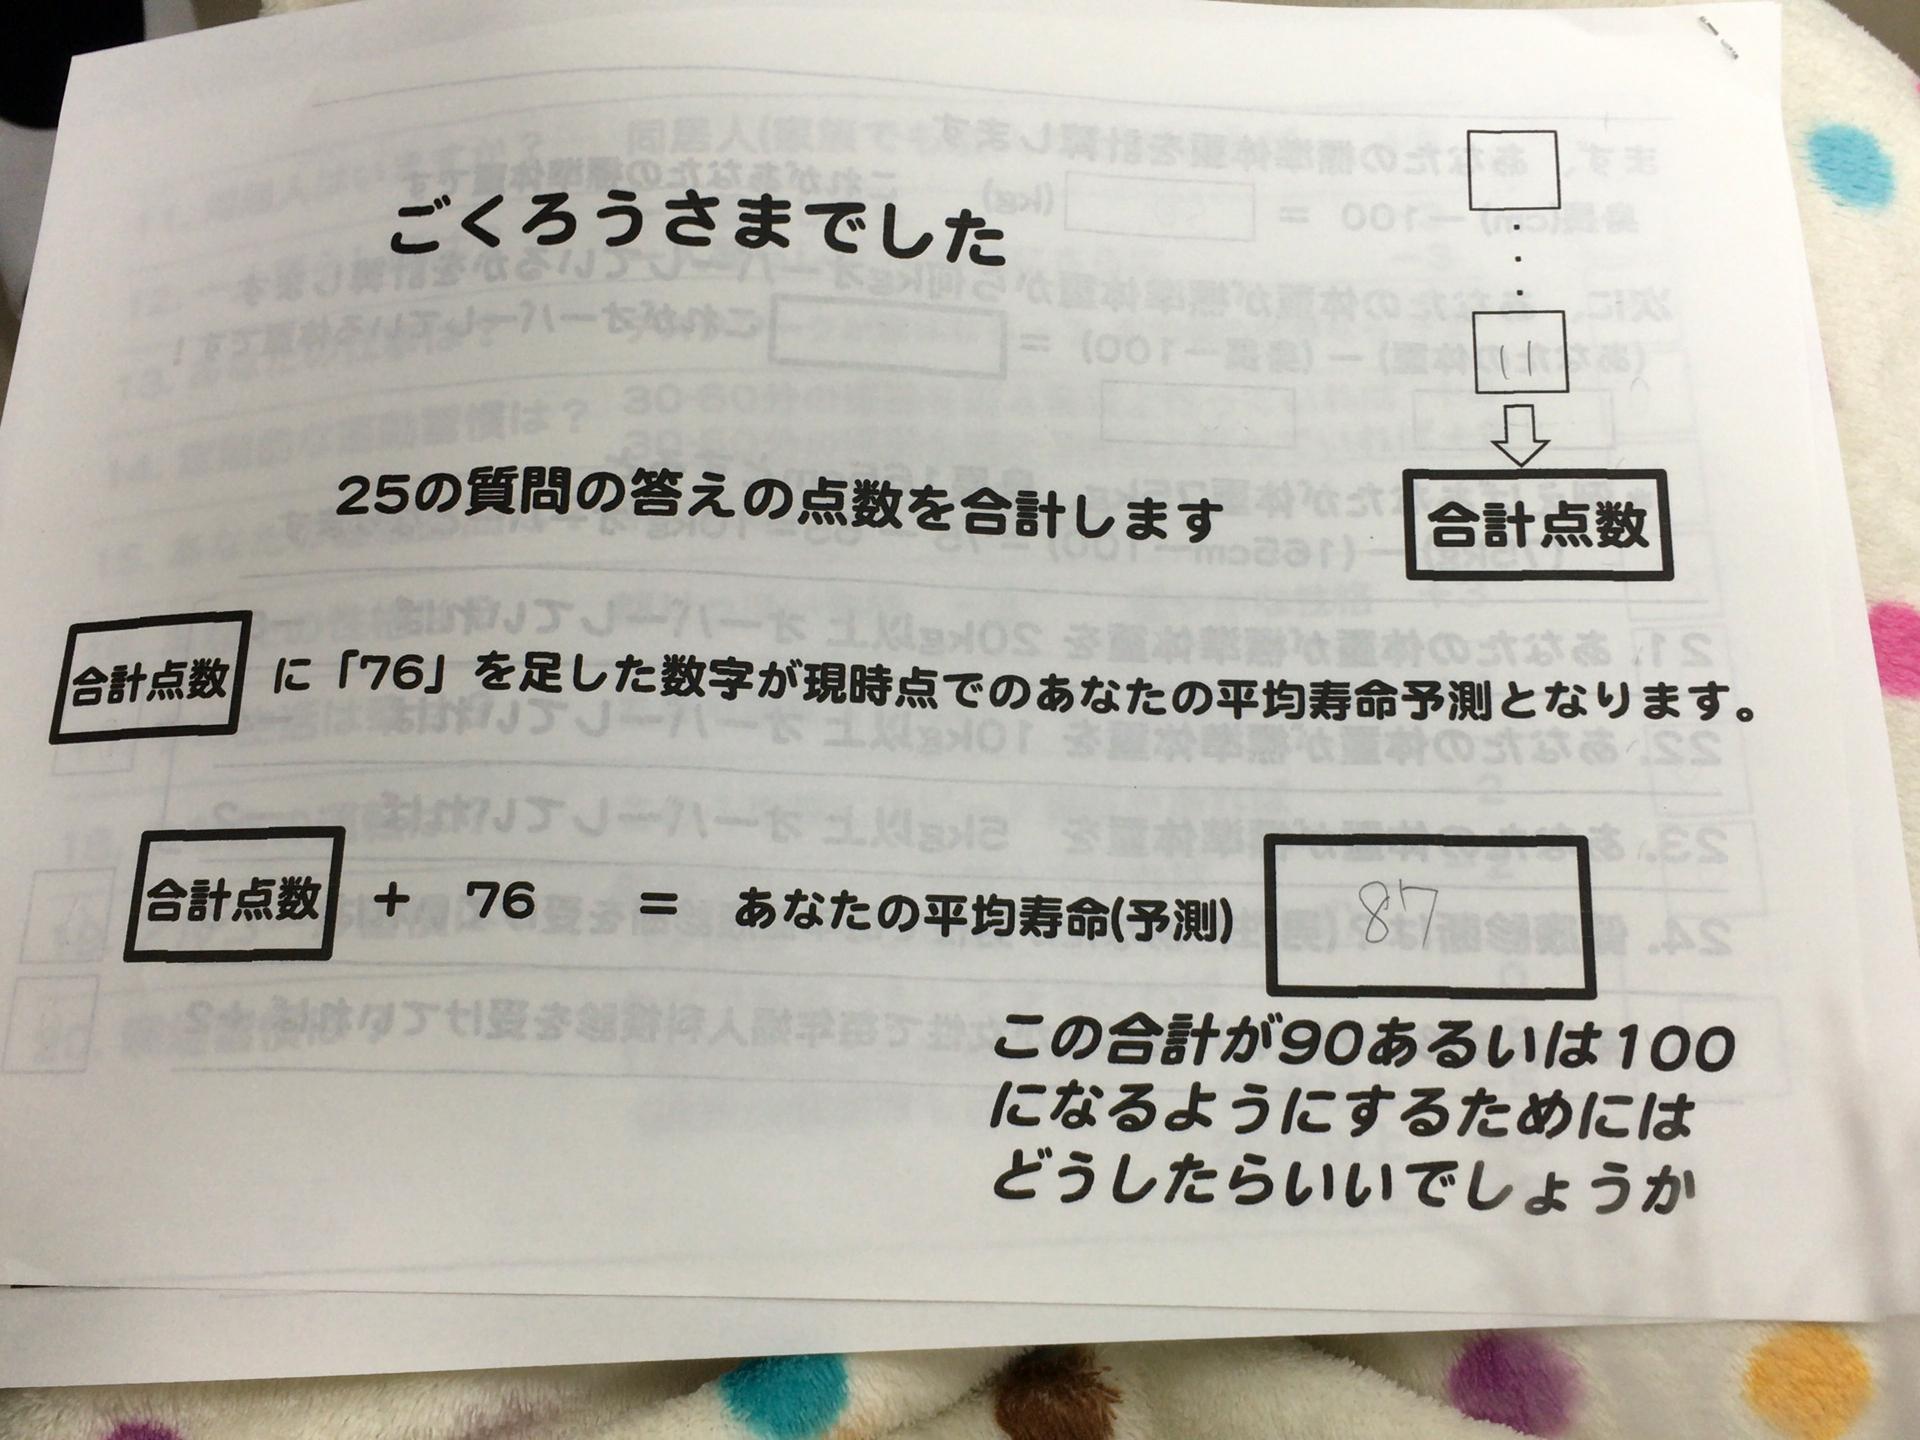 ごくろうさまでした
11
25の質問の答えの点数を合計します
合計点数
合計点数 に「76」を足した数字が現時点でのあなたの平均寿命予測となります。
合計点数 + 76 = あなたの平均寿命(予測) 87
この合計が90あるいは100
になるようにするためには
どうしたらいいでしょうか